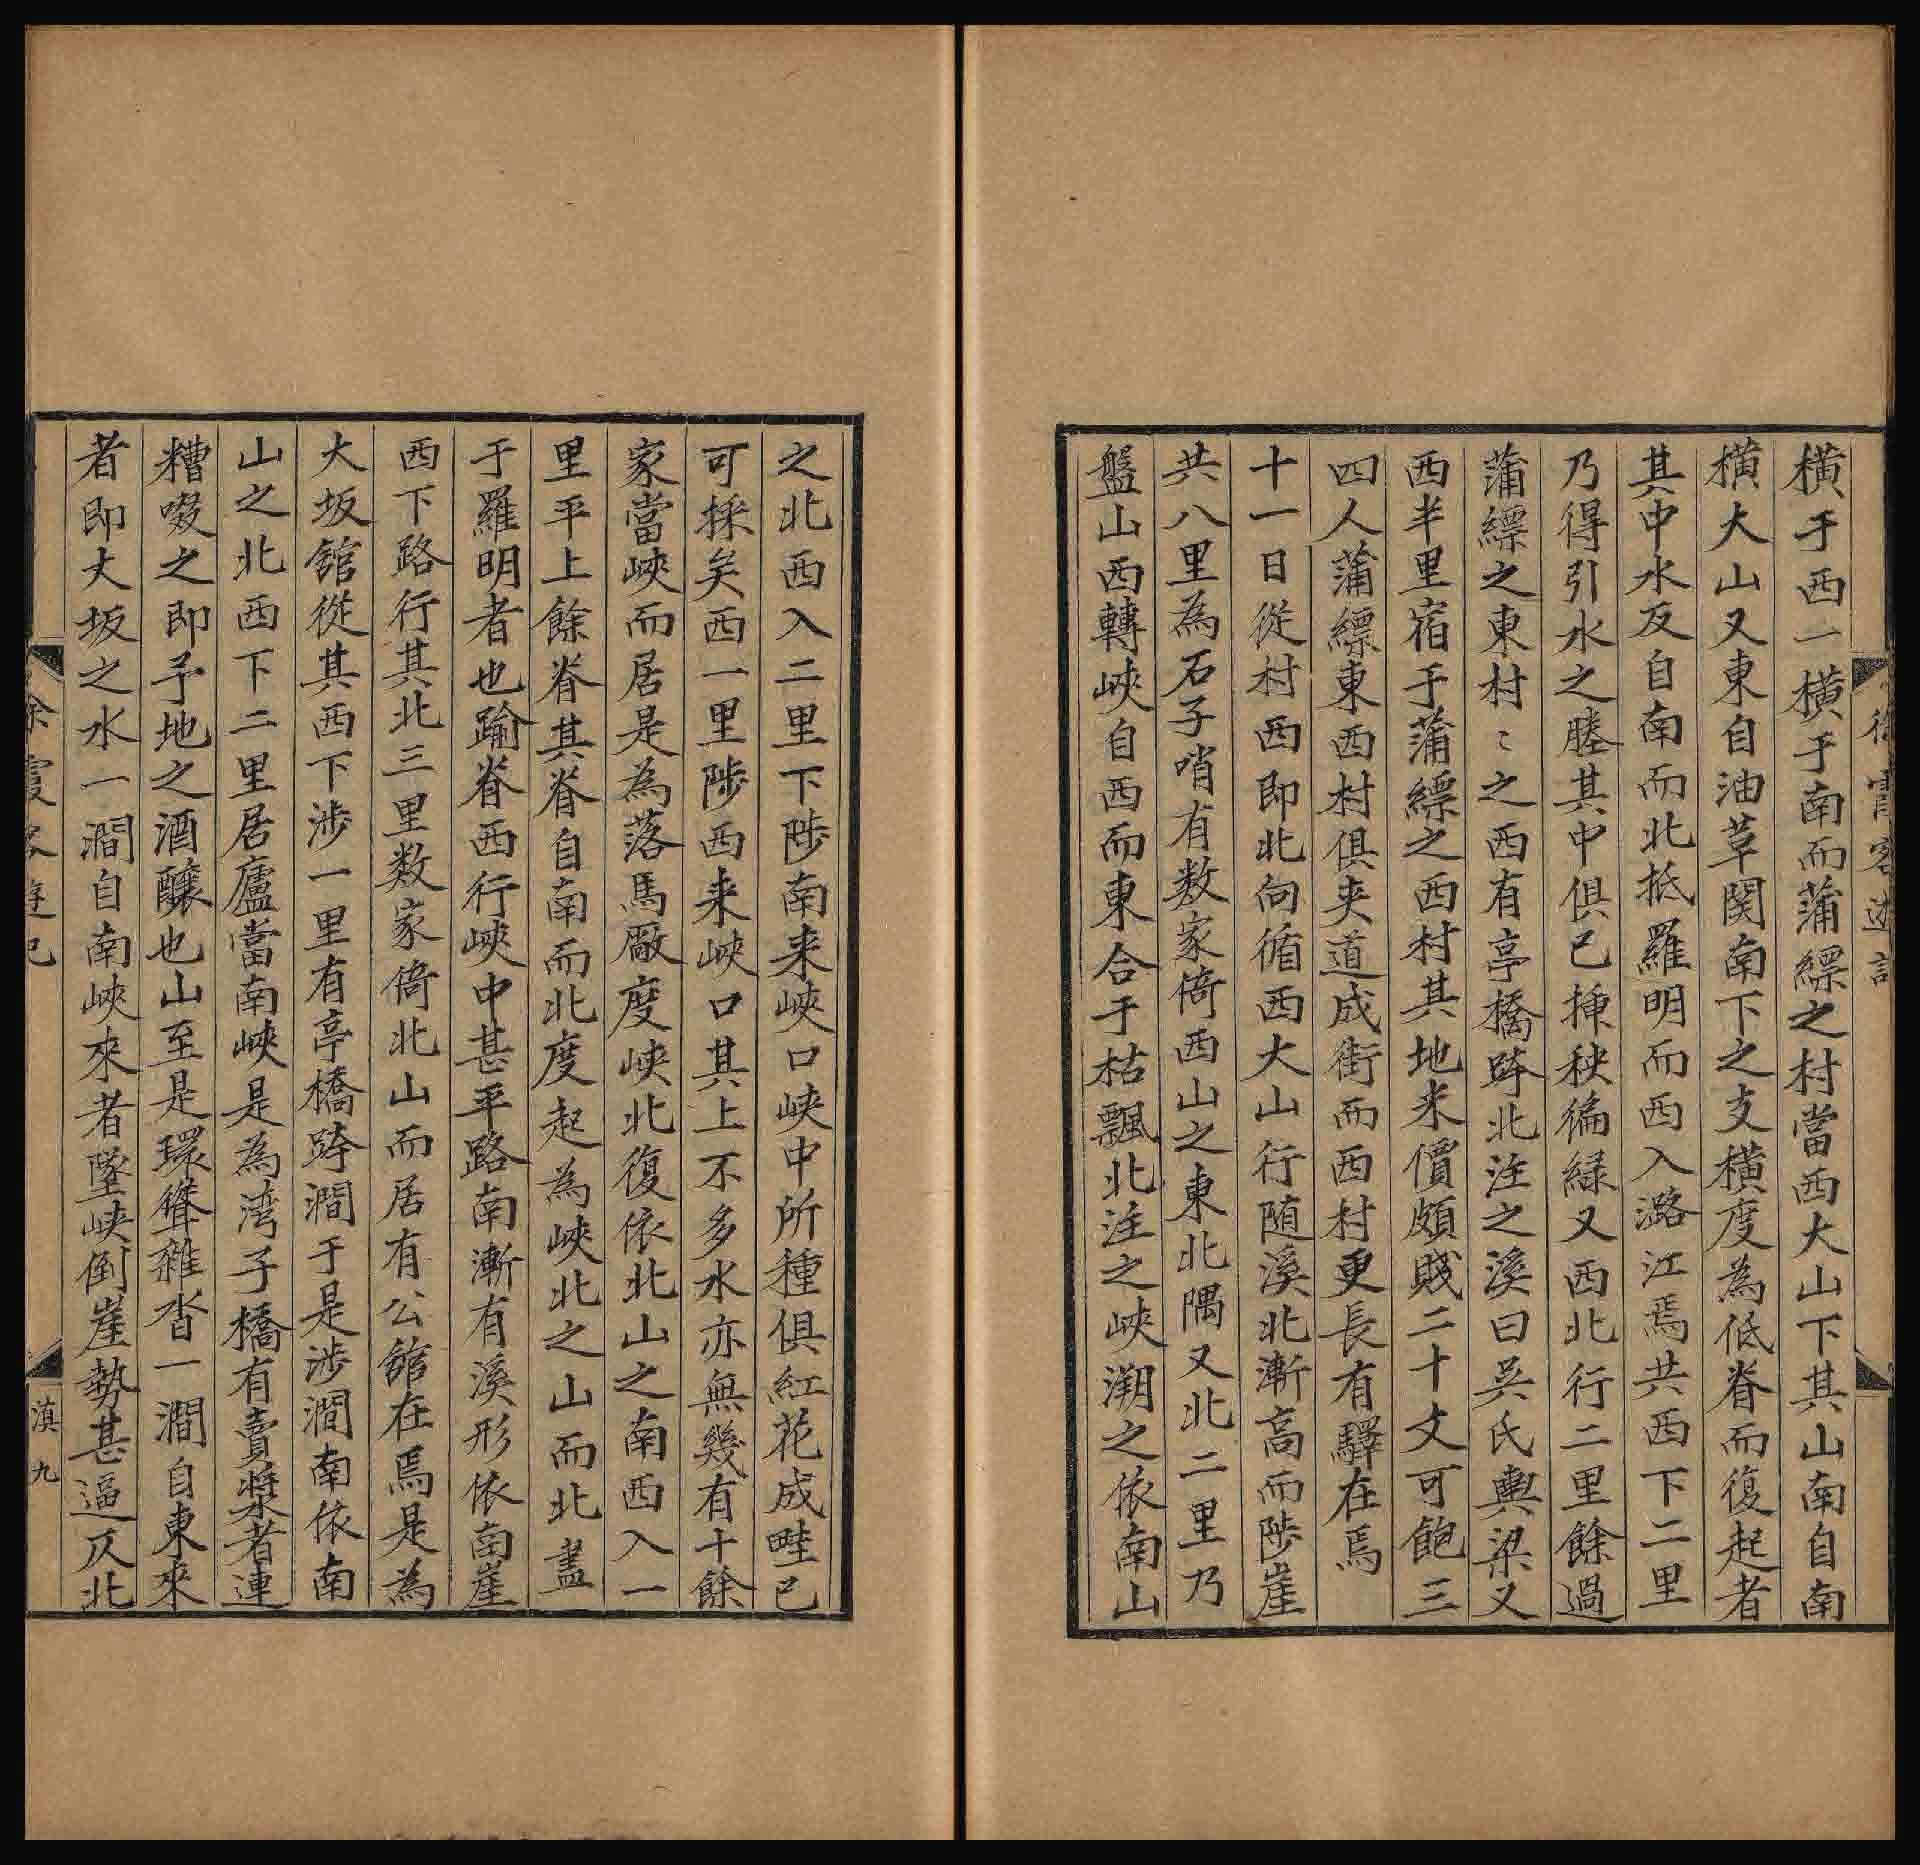 橫于西一橫于南而蒲縹之村當西大山下其山南自南
橫大山又東自油草関南下之支橫度為低脊而復起者
其中水反自南而北抵羅明而西入潞江焉共西下二里
乃得引水之塍其中俱已挿秧徧緑又西北行二里餘過
蒲縹之東村〻之西有亭橋跨北注之溪曰吳氏輿梁又
西半里宿于蒲縹之西村其地米價頗賤二十文可飽三
四人蒲縹東西村俱夾道成街而西村更長有驛在焉
十一日從村西即北向循西大山行随溪北漸高而陟崖
共八里為石子哨有数家倚西山之東北隅又北二里乃
盤山西轉峽自西而東合于枯飄北注之峽溯之依南山
之北西入二里下陟南来峽口峡中所種俱紅花成畦已
可採矣西一里陟西来峽口其上不多水亦無幾有十餘
家當峽而居是為落馬厰度峽北復依北山之南西入一
里平上餘脊其脊自南而北度起為峽北之山而北盡
于羅明者也踰脊西行峽中甚平路南漸有溪形依南崖
西下路行其北三里数家倚北山而居有公舘在焉是為
大坂舘從其西下涉一里有亭橋跨澗于是涉澗南依南
山之北西下二里居廬當南峽是為湾子橋有賣漿者連
糟啜之即予地之酒釀也山至是環聳雜沓一澗自東來
者即大坂之水一澗自南峽來者墜峡倒崖勢甚逼仄北
徐霞客遊記
滇九